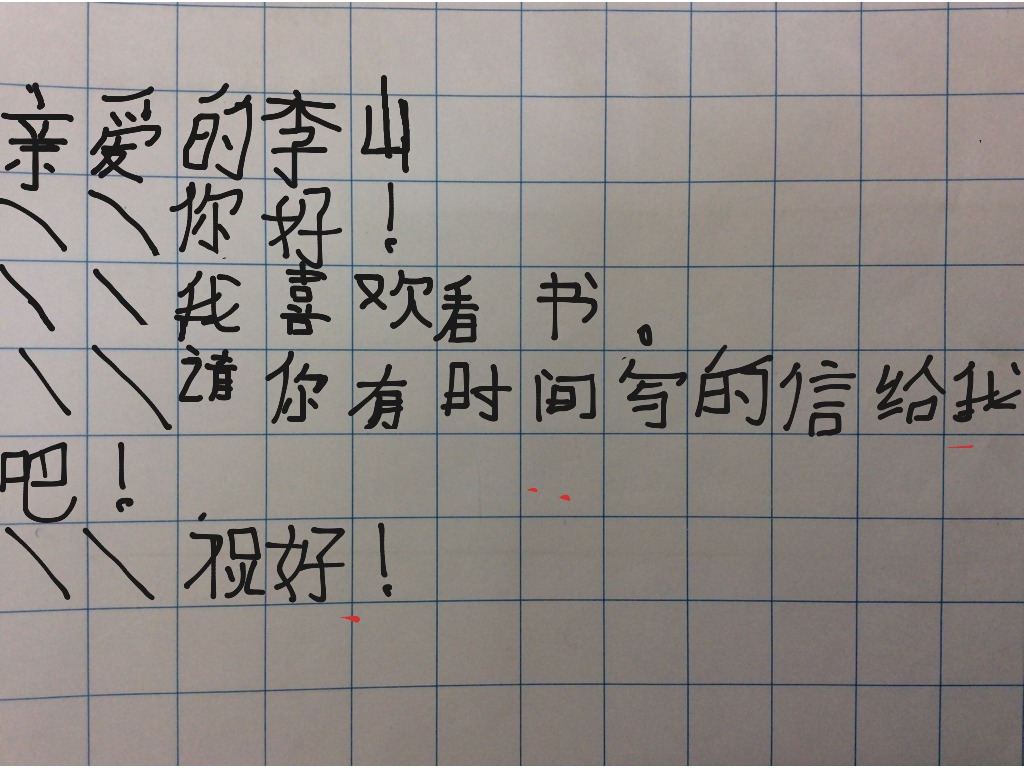 亲爱的李山
你好！
我喜欢看书。
请你有时间写的信给我
吧！
祝好！